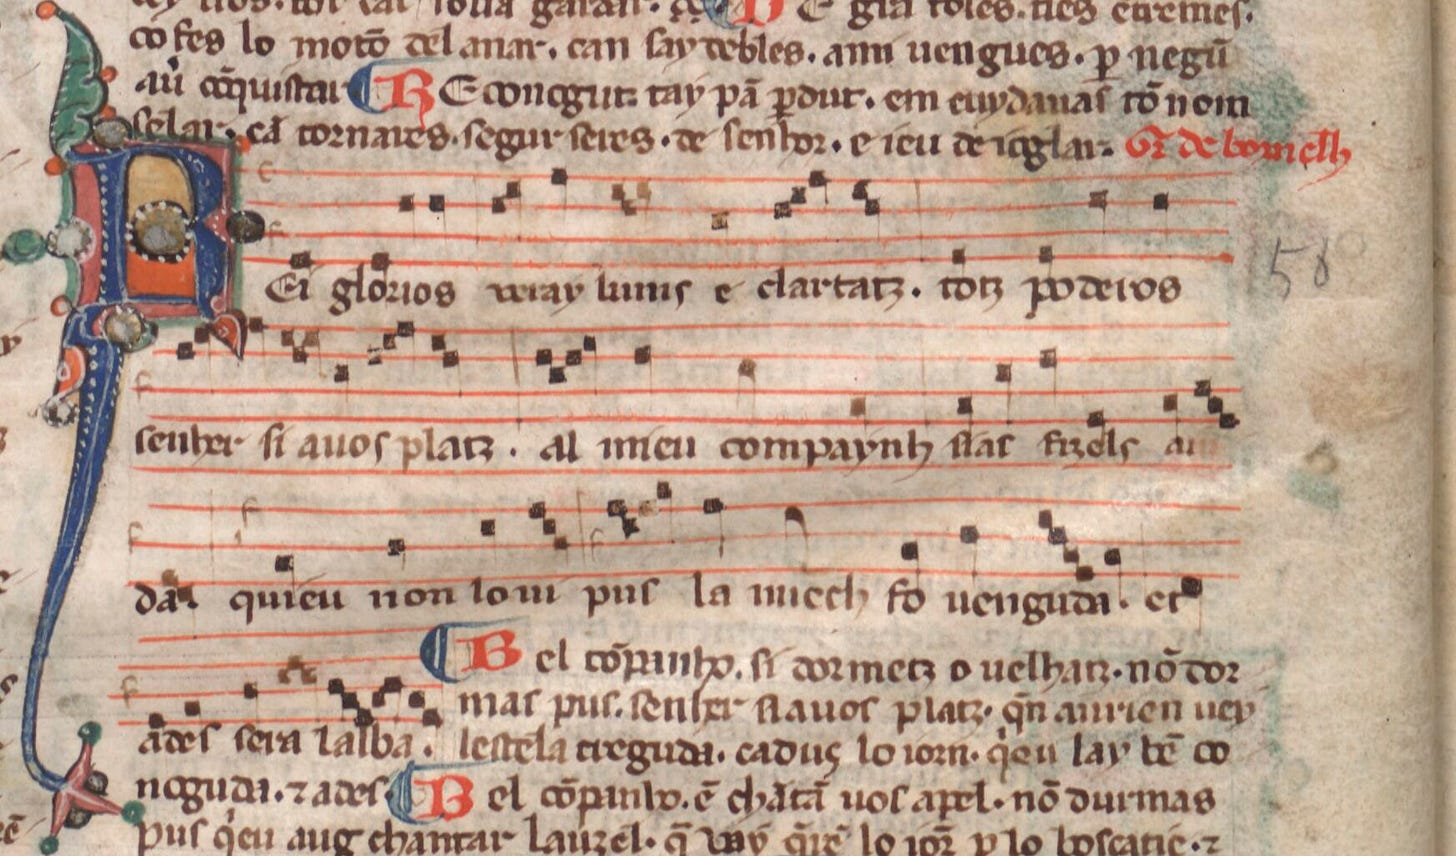 co fes lo motō del anar. can say tebles. ann uengues. p negū
au cōquistai BE conogut: tay pā pdut. em cuydauas tō nom
selar. cā tornares. segur seres. de senhor. e ieu de ioglar. Gr de bornelh
REi glorios veray lums e clartatz. totz poderos
senher si auos platz. al mieu compaynh sias fizels aiu
da. quieu non loui pus la nuech fo uenguda. et
Bel cōpanho. si dormetz o uelhatz. nō dor
mas pus. senher si auos platz. qn aurien uey
ades sera lalba. lestela creguda. caduş lo iorn. qeu lay bē co
noguda. ⁊ ades Bel cōpanho. ē chātā uos apel. nō durmas
pus qeu aug chantar lauzel. q vay qrē lo ior p lo boscatie. ⁊
58